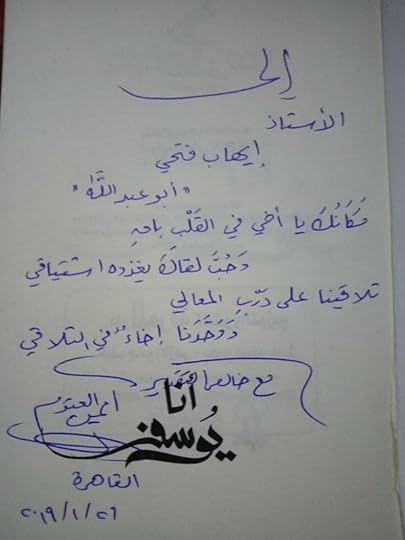 إلى
الأستاذ
إيهاب فتحي
"أبو عبد الله"
مَكَانُكَ يا أخي في القَلْبِ باقٍ
وَحُبُّ لقاكَ يغزوه اشتياقي
تلاقينا على دَرْبِ المعالي
وَوَحَّدَنا إخاءٌ في التلاقي
مع خالص التقدير
أيمن العتوم
أنا
يُوسف
القاهرة
٢٠١٩/١/٢٦